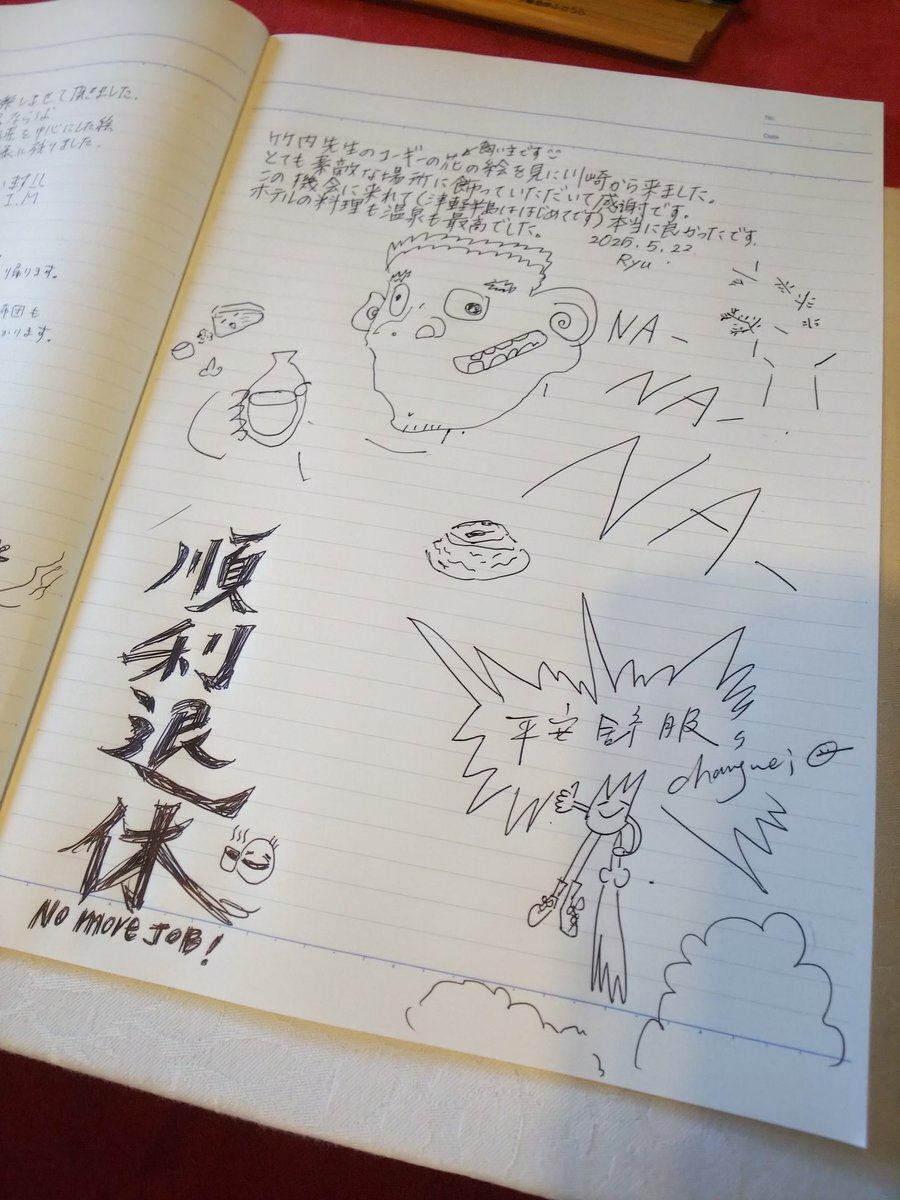 させて頂きました。
ならば
を中心にした絵
に残りました。
I.M
帰ります。
布団も
かります。
No.
Date
飼い主です
竹内先生のコーギーの花の絵を見に川崎から来ました。
とても素敵な場所に飾っていただいて感謝です。
この機会に来れて(津軽半島ははじめてです)本当に良かったです。
ホテルの料理も温泉も最高でした。
2025.5.22
Ryu
NA
NA
NA
順利退休
No more JOB!
平安舒服